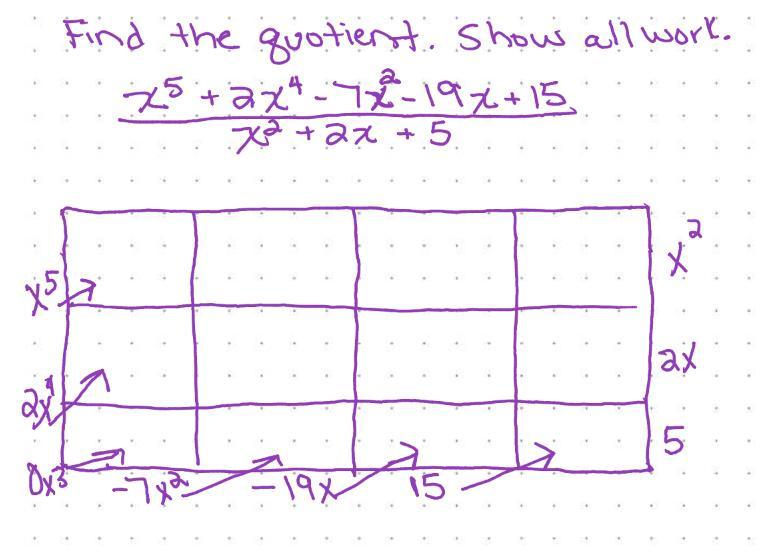 Find the quotient. Show all work.
x⁵ + 2x⁴ - 7x² - 19x + 15
x² + 2x + 5
x²
x⁵
2x
2x⁴
5
0x³ -7x² -19x 15